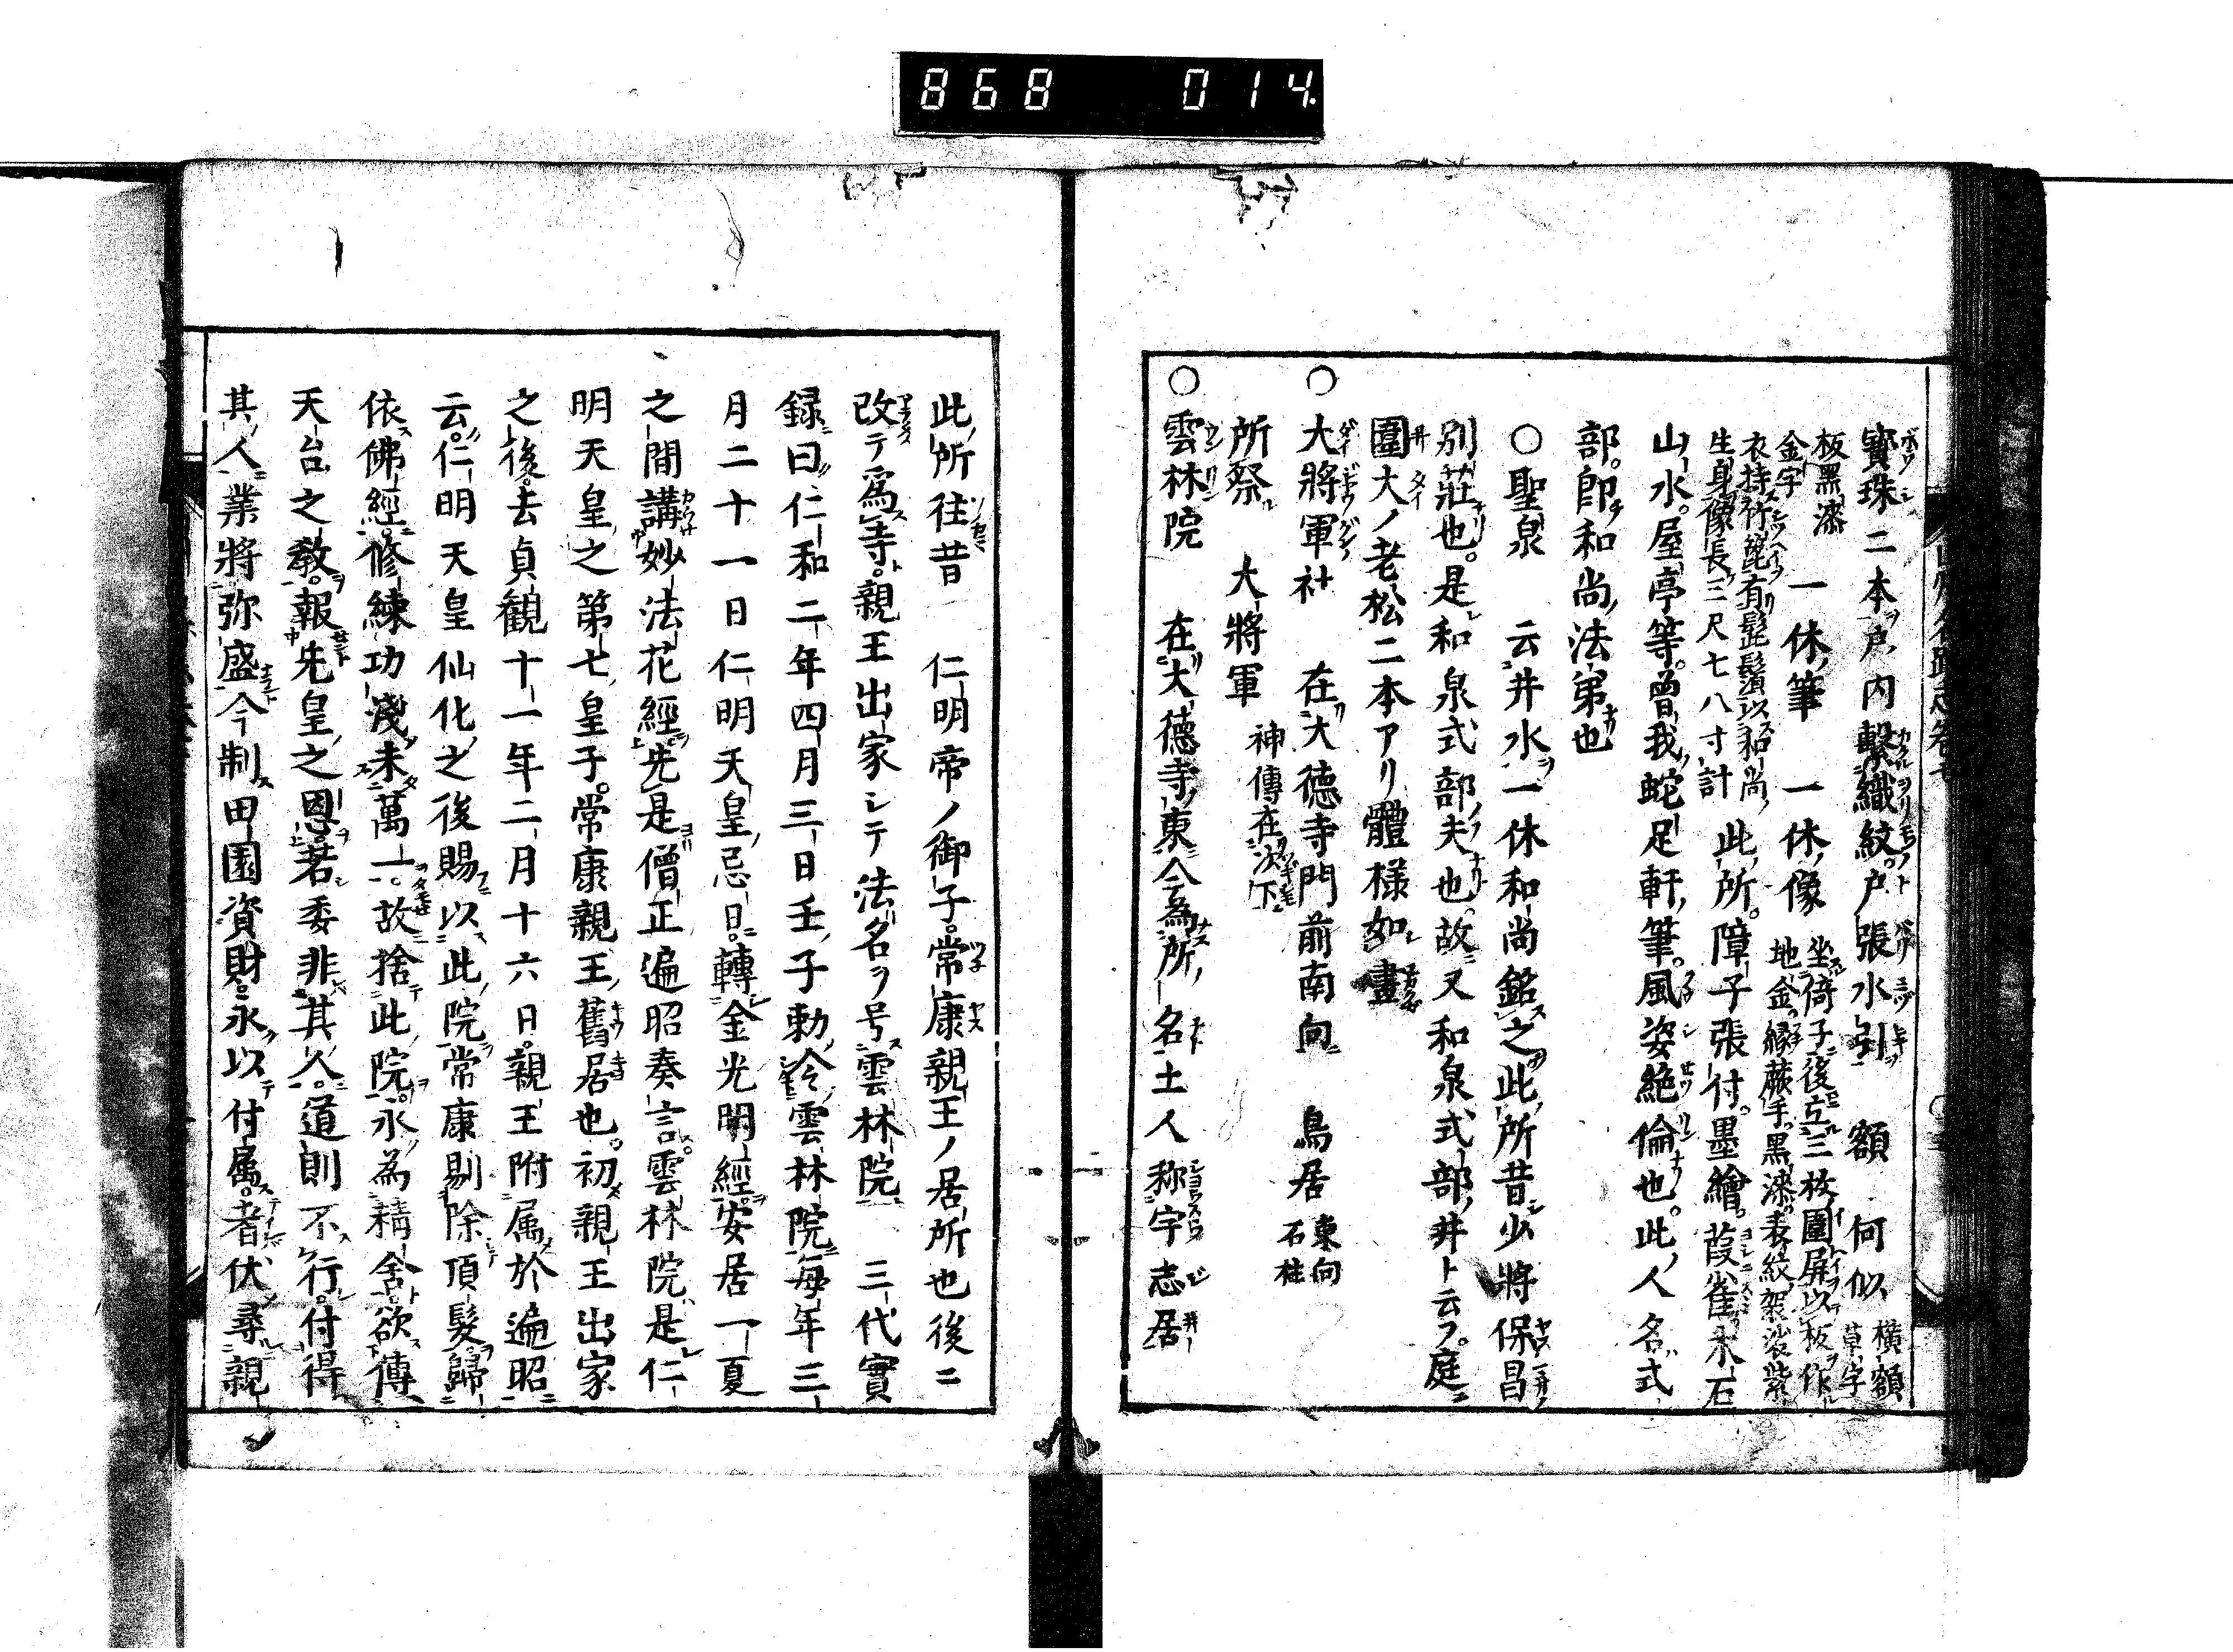 868 014
寶珠二本戸内繫織紋戸張水引 額 何似 横額草字
板黒漆金字 一休筆 一休像 坐倚子後立三枚圍屏以板作
地金縁蕨手黒漆表紋袈裟紫
衣持竹箆有髭鬚以和尚
生身像長三尺七八寸計 此所障子張付墨繪葭雀木石
山水屋亭等曽我蛇足軒筆風姿絶倫也此人名式
部郎和尚法弟也
○聖泉 云井水一休和尚銘之此所昔少將保昌
別莊也是和泉式部夫也故又和泉式部井ト云フ庭
圍大ノ老松二本アリ體様如畫
○大將軍社 在大德寺門前南向 鳥居 東向石柱
所祭 大將軍 神傳在次下
○雲林院 在大德寺東今為所名土人称宇志居
此所往昔 仁明帝ノ御子常康親王ノ居所也後ニ
改テ為寺親王出家シテ法名ヲ号雲林院 三代實
録曰仁和二年四月三日壬子勅令雲林院毎年三
月二十一日仁明天皇忌日轉金光明經安居一夏
之間講妙法花經先是僧正遍昭奏言雲林院是仁
明天皇之第七皇子常康親王舊居也初親王出家
之後去貞観十一年二月十六日親王附属於遍昭
云仁明天皇仙化之後賜以此院常康剔除頂髮歸
依佛經修練功淺未萬一故捨此院永為精舍欲傳
天台之教報先皇之恩若委非其人道則不行付得
其人業將弥盛今制田園資財永以付属者伏尋親